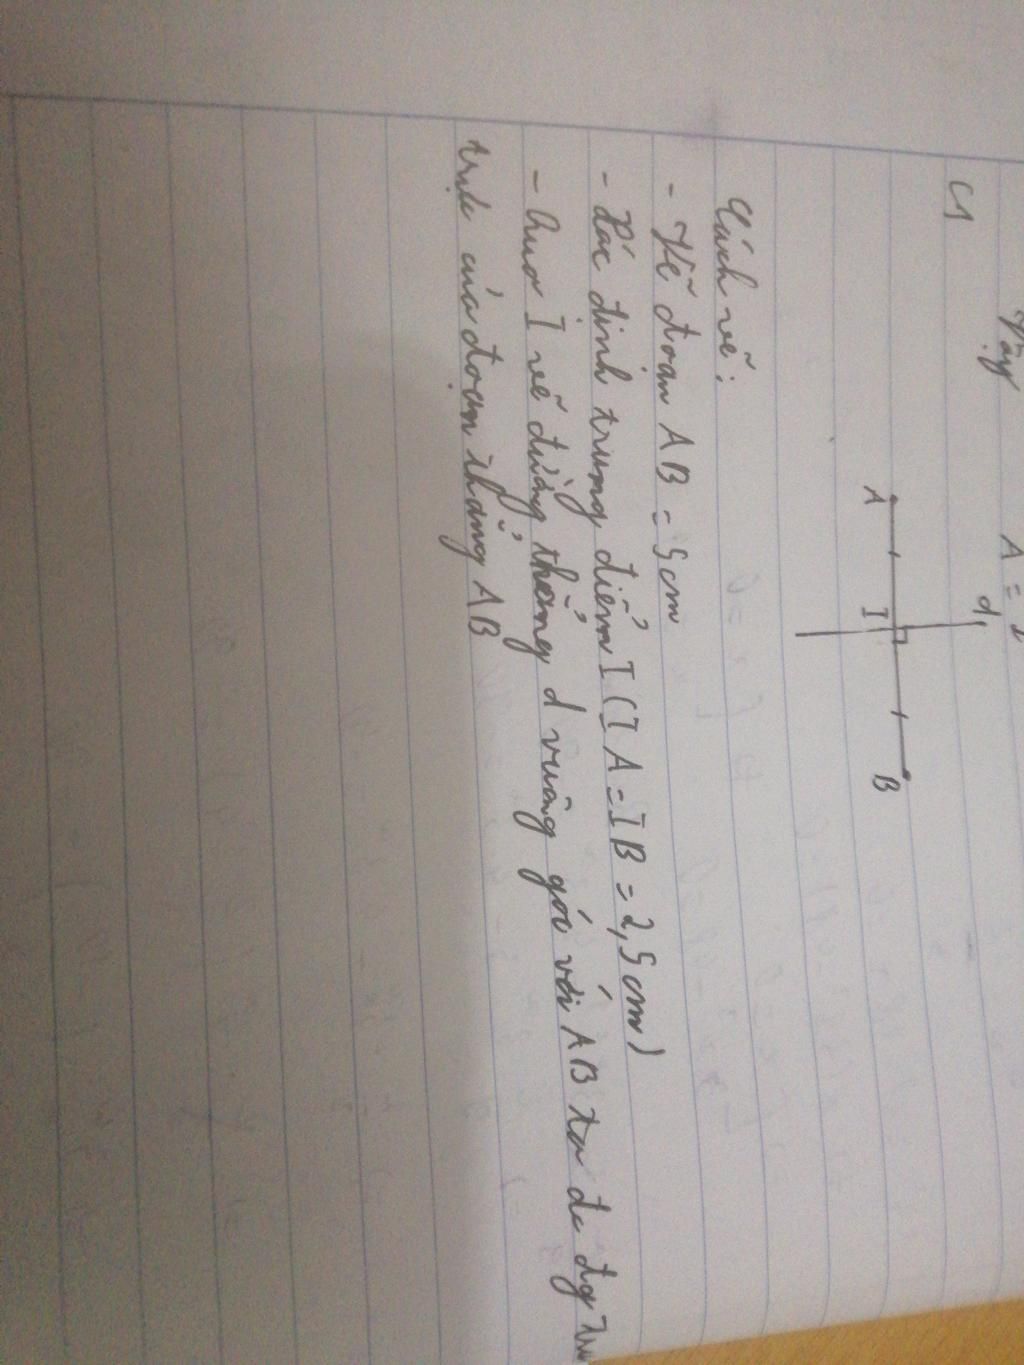 Vậy A = 2
C1
d
A I B
Cách vẽ:
- Vẽ đoạn AB = 5cm
- Xác định trung điểm I (IA = IB = 2,5cm)
- Qua I vẽ đường thẳng d vuông góc với AB ta đc đg
của đoạn thẳng AB